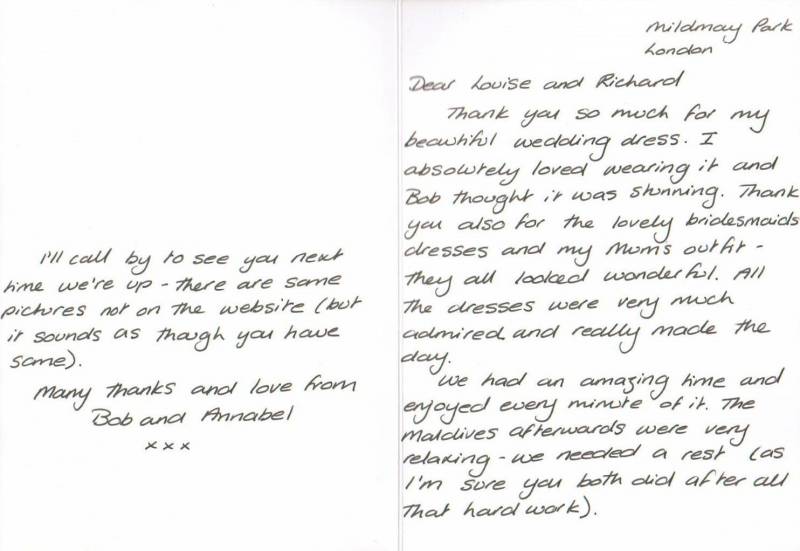 Mildmay Park
London
Dear Louise and Richard
Thank you so much for my
beautiful wedding dress. I
absolutely loved wearing it and
Bob thought it was stunning. Thank
you also for the lovely bridesmaids
dresses and my Mum's outfit -
they all looked wonderful. All
the dresses were very much
admired and really made the
day.
We had an amazing time and
enjoyed every minute of it. The
Maldives afterwards were very
relaxing - we needed a rest (as
I'm sure you both did after all
that hard work).
I'll call by to see you next
time we're up - there are some
pictures not on the website (but
it sounds as though you have
some).
Many thanks and love from
Bob and Annabel
x x x